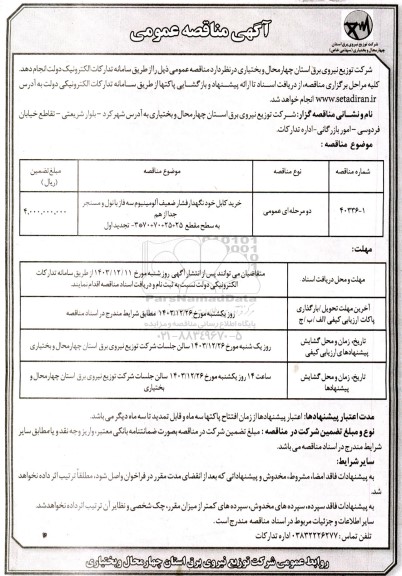 آگهی مناقصه عمومی
شرکت توزیع نیروی برق استان
چهارمحال و بختیاری (سهامی خاص)
شرکت توزیع نیروی برق استان چهارمحال و بختیاری در نظر دارد مناقصه عمومی ذیل را از طریق سامانه تدارکات الکترونیک دولت انجام دهد.
کلیه مراحل برگزاری مناقصه، از دریافت اسناد تا ارائه پیشنهاد و بازگشایی پاکتها از طریق سامانه تدارکات الکترونیکی دولت به آدرس
www.setadiran.ir انجام خواهد شد.
نام و نشانی مناقصه گزار: شرکت توزیع نیروی برق استان چهارمحال و بختیاری به آدرس شهرکرد - بلوار شریعتی - تقاطع خیابان
فردوسی - امور بازرگانی - اداره تدارکات.
موضوع مناقصه :
شماره مناقصه نوع مناقصه موضوع مناقصه مبلغ تضمین (ریال)
۴۰۳۳۶-۱ دو مرحله ای عمومی خرید کابل خود نگهدار فشار ضعیف آلومینیوم سه فاز با نول و مسنجر
جدا از هم
به سطح مقطع ۲۵-۲۵-۷۰-۷۰*۳ - تجدید اول ۴,۰۰۰,۰۰۰,۰۰۰
مهلت:
مهلت و محل دریافت اسناد متقاضیان می توانند پس از انتشار آگهی روز شنبه مورخ ۱۴۰۳/۱۲/۱۱ از طریق سامانه تدارکات
الکترونیکی دولت نسبت به ثبت نام و دریافت اسناد مناقصه اقدام نمایند.
آخرین مهلت تحویل / بارگذاری
پاکات ارزیابی کیفی / الف / ب / ج روز یکشنبه مورخ ۱۴۰۳/۱۲/۲۶ مطابق شرایط مندرج در اسناد مناقصه
تاریخ، زمان و محل گشایش
پیشنهادهای ارزیابی کیفی روز یک شنبه مورخ ۱۴۰۳/۱۲/۲۶ سالن جلسات شرکت توزیع نیروی برق استان چهارمحال و بختیاری
تاریخ، زمان و محل گشایش
پیشنهادها ساعت ۱۴ روز یکشنبه مورخ ۱۴۰۳/۱۲/۲۶ سالن جلسات شرکت توزیع نیروی برق استان چهارمحال و
بختیاری
ParsNamadData
پایگاه اطلاع رسانی مناقصه و مزایده
۰۲۱-۸۸۳۴۹۶۷۰-۵
مدت اعتبار پیشنهادها: اعتبار پیشنهادها از زمان افتتاح پاکتها سه ماه و قابل تمدید تا سه ماه دیگر می باشد.
نوع و مبلغ تضمین شرکت در مناقصه : مبلغ تضمین شرکت در مناقصه بصورت ضمانتنامه بانکی معتبر، واریز وجه نقد و یا مطابق سایر
شرایط مندرج در اسناد مناقصه می باشد.
سایر شرایط:
به پیشنهادات فاقد امضا، مشروط، مخدوش و پیشنهاداتی که بعد از انقضای مدت مقرر در فراخوان واصل شود، مطلقاً ترتیب اثر داده نخواهد
شد.
به پیشنهادات فاقد سپرده، سپرده های مخدوش، سپرده های کمتر از میزان مقرر، چک شخصی و نظایر آن ترتیب اثر داده نخواهد شد.
سایر اطلاعات و جزئیات مربوط در اسناد مناقصه مندرج است.
تلفن تماس: ۰۳۸۳۲۲۲۶۲۷۷ اداره تدارکات
روابط عمومی شرکت توزیع نیروی برق استان چهارمحال وبختیاری